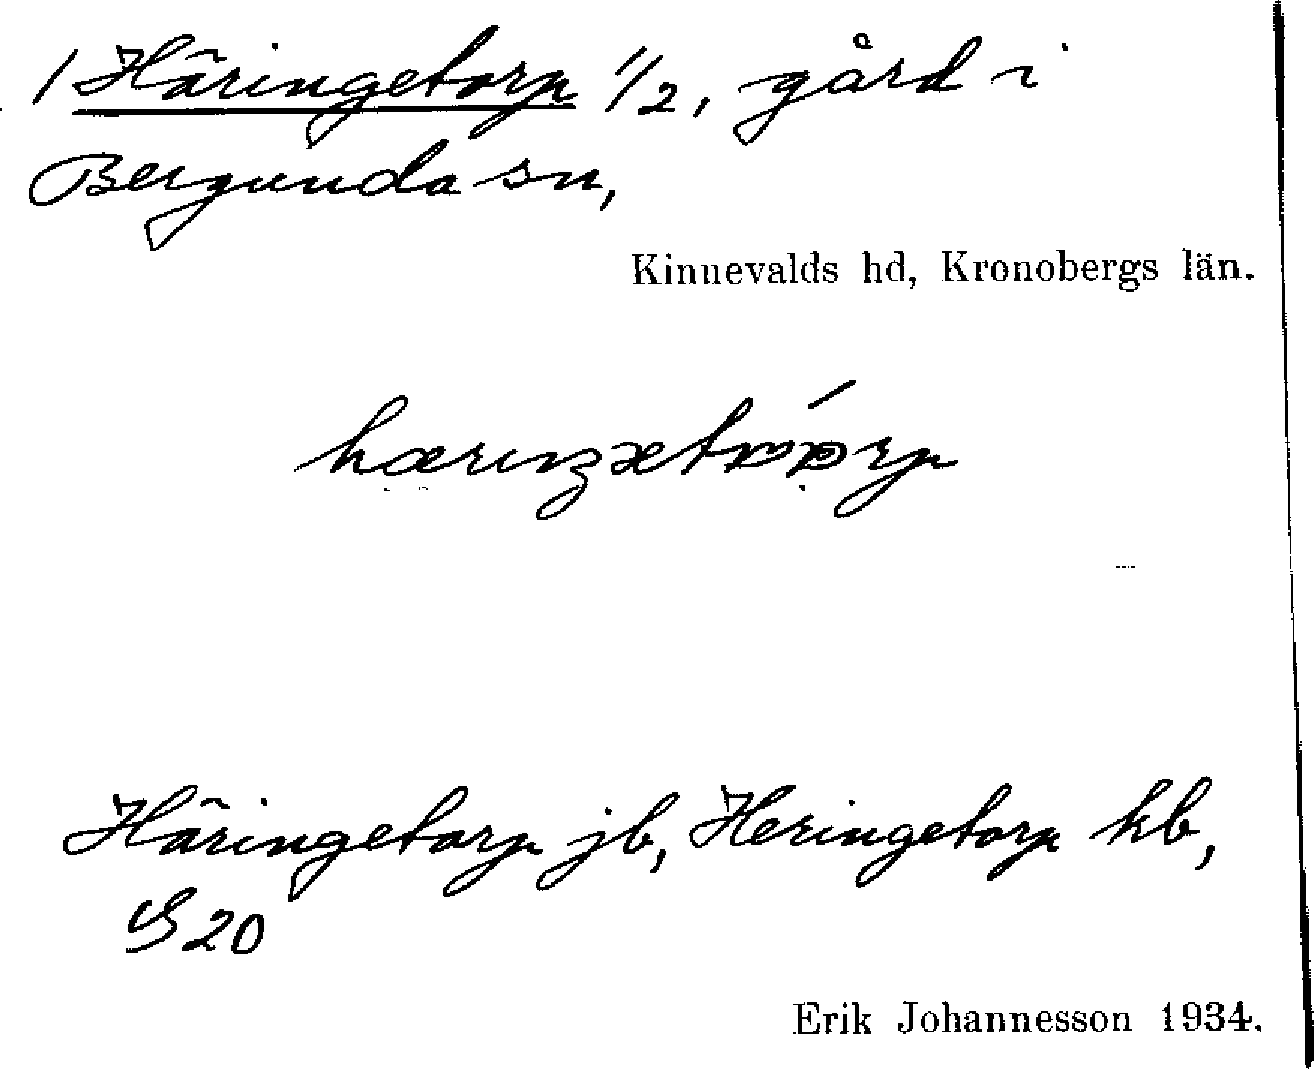 / Häringetorp 1/2, gård i
Bergunda sn,
Kinnevalds hd, Kronobergs län.
Häringetorp jb, Heringetorp kb,
S 20
Erik Johannesson 1934.